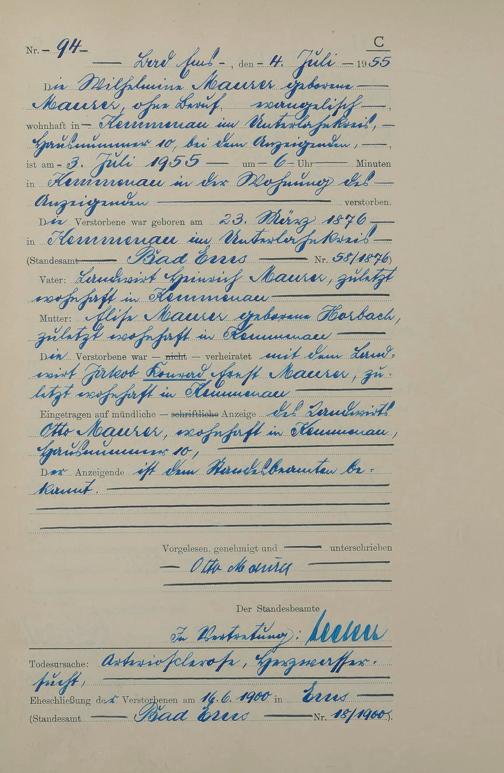 C
Nr. – 94 –
— Bad Ems –, den – 4. Juli – 1955
Die Wilhelmine Maurer geborene —
Maurer, ohne Beruf, evangelisch —,
wohnhaft in – Kemmenau im Unterlahnkreis, –
Hausnummer 10, bei dem Anzeigenden, —,
ist am – 3. Juli 1955 — um – 6 – Uhr — Minuten
in Kemmenau in der Wohnung des —
Anzeigenden — verstorben.
Die Verstorbene war geboren am 23. März 1876 —
in Kemmenau im Unterlahnkreis —
(Standesamt — Bad Ems — Nr. 58/1876)
Vater: Landwirt Heinrich Maurer, zuletzt
wohnhaft in Kemmenau —
Mutter: Elise Maurer geborene Horbach,
zuletzt wohnhaft in Kemmenau —
Die Verstorbene war – nicht – verheiratet mit dem Land-
wirt Jakob Konrad Ernst Maurer, zu-
letzt wohnhaft in Kemmenau —
Eingetragen auf mündliche – schriftliche Anzeige des Landwirts
Otto Maurer, wohnhaft in Kemmenau,
Hausnummer 10, —
Der Anzeigende ist dem Standesbeamten be-
kannt. —
Vorgelesen, genehmigt und — unterschrieben
— Otto Maurer —
Der Standesbeamte
In Vertretung:
Todesursache: Arteriosclerose, Herzwasser-
sucht, —
Eheschließung der Verstorbenen am 14.6.1900 in Ems —
(Standesamt — Bad Ems — Nr. 18/1900).